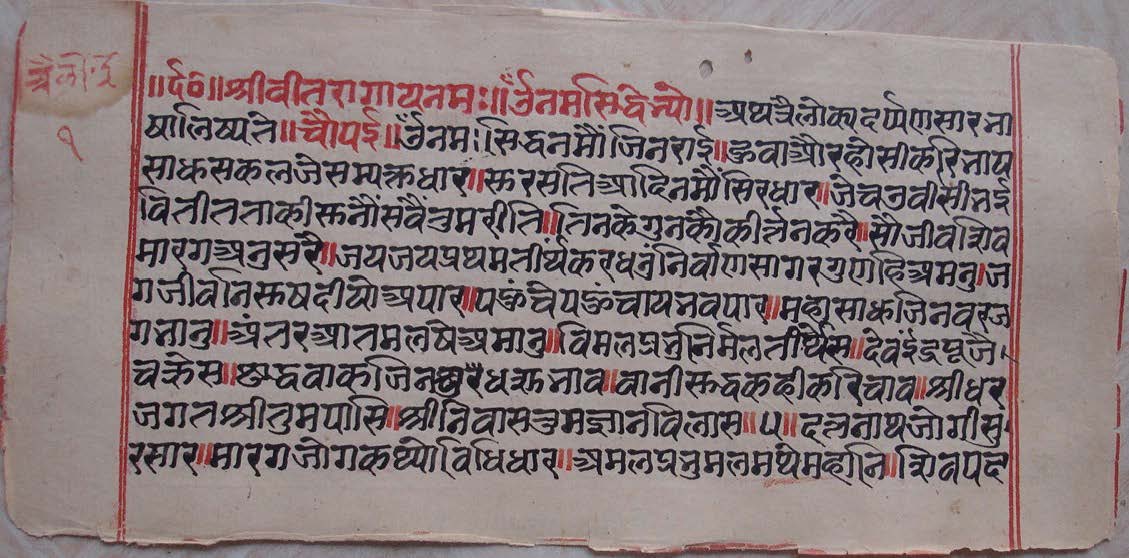 त्रैलो॰द॰
१
॥र्द०॥श्रीवीतरागायनमः॥ॐनमःसिद्धेभ्यो॥अथत्रैलोकदर्प्पणसारभा
षालिष्यते॥चौपई॥ॐनमःसिद्धनमौंजिनराई॥हुवाऔरहोसीकरिभाय
साधसकलजेसम्यक्तधार॥सरसतिआदिनमौंसिरधार॥जेचउवीसीभई
वितीतताकीसुनौंसवैंतुमरीति॥तिनकेगुनकौकीर्त्तनकरै॥सौजीवशिव
मारगअनुसरै॥जयजयप्रथमतीर्थंकरधनुंनिर्वाणसागरगुणहिअमनु॥ज
गजीवनिसुषदीयोअपार॥पहुंचेपहुंचायभवपार॥महासाधजिनवरज
गभानु॥अंतरआतमलषेअमानु॥विमलप्रभुनिर्मलतीर्थेस॥देवइंद्रपूजै
चक्रेस॥शुद्धवाकजिनधरैधरूभाव॥वानीसुद्धकहीकरिचाव॥श्रीधर
जगतश्रीतुमपासि॥श्रीनिवासतुमज्ञानविलास॥५॥दत्तनाथजोगीसु
रसार॥मारगजोगकथ्योविधिधार॥अमलप्रभुमलमथेमहानि॥शिवपद